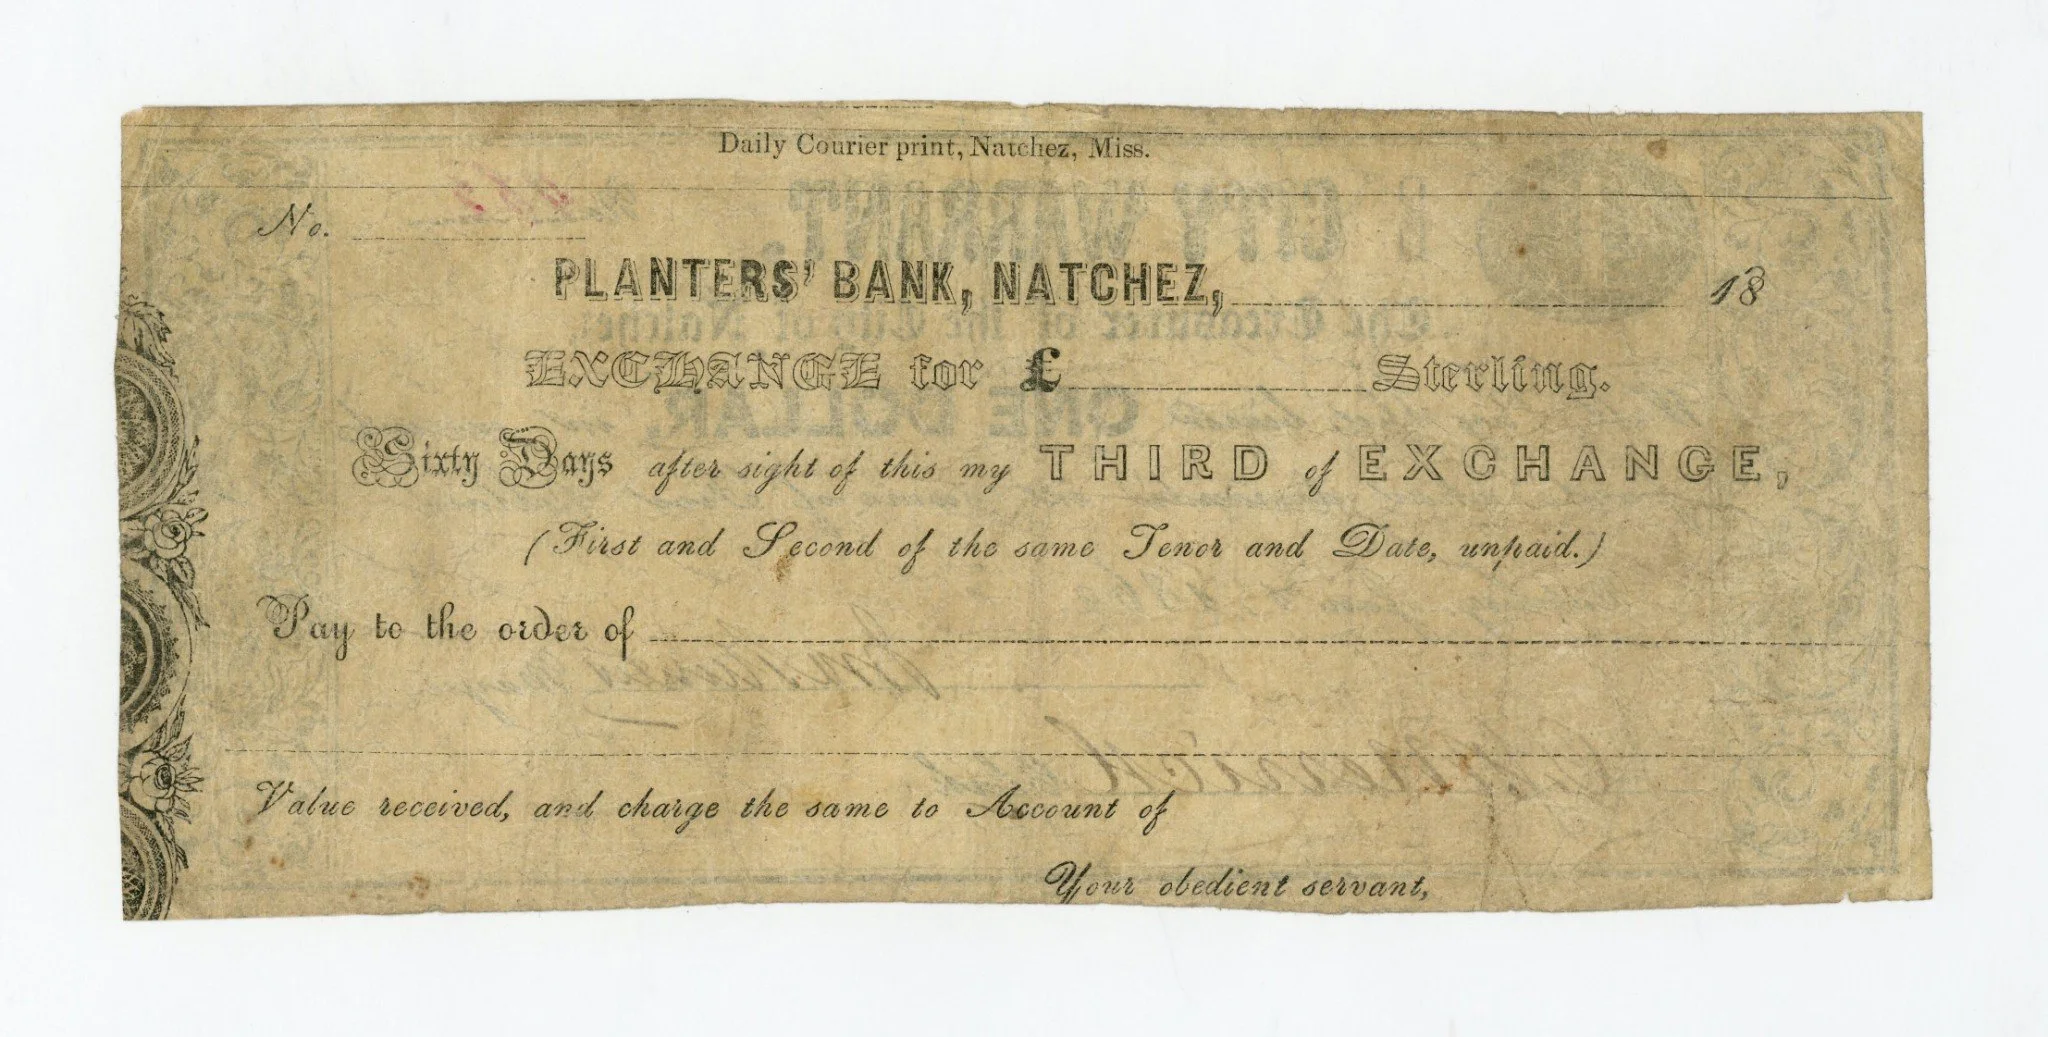 Daily Courier print, Natchez, Miss.
No.
PLANTERS' BANK, NATCHEZ, 18
EXCHANGE for £ Sterling.
Sixty Days after sight of this my THIRD of EXCHANGE,
(First and Second of the same Tenor and Date, unpaid.)
Pay to the order of
Value received, and charge the same to Account of
Your obedient servant,